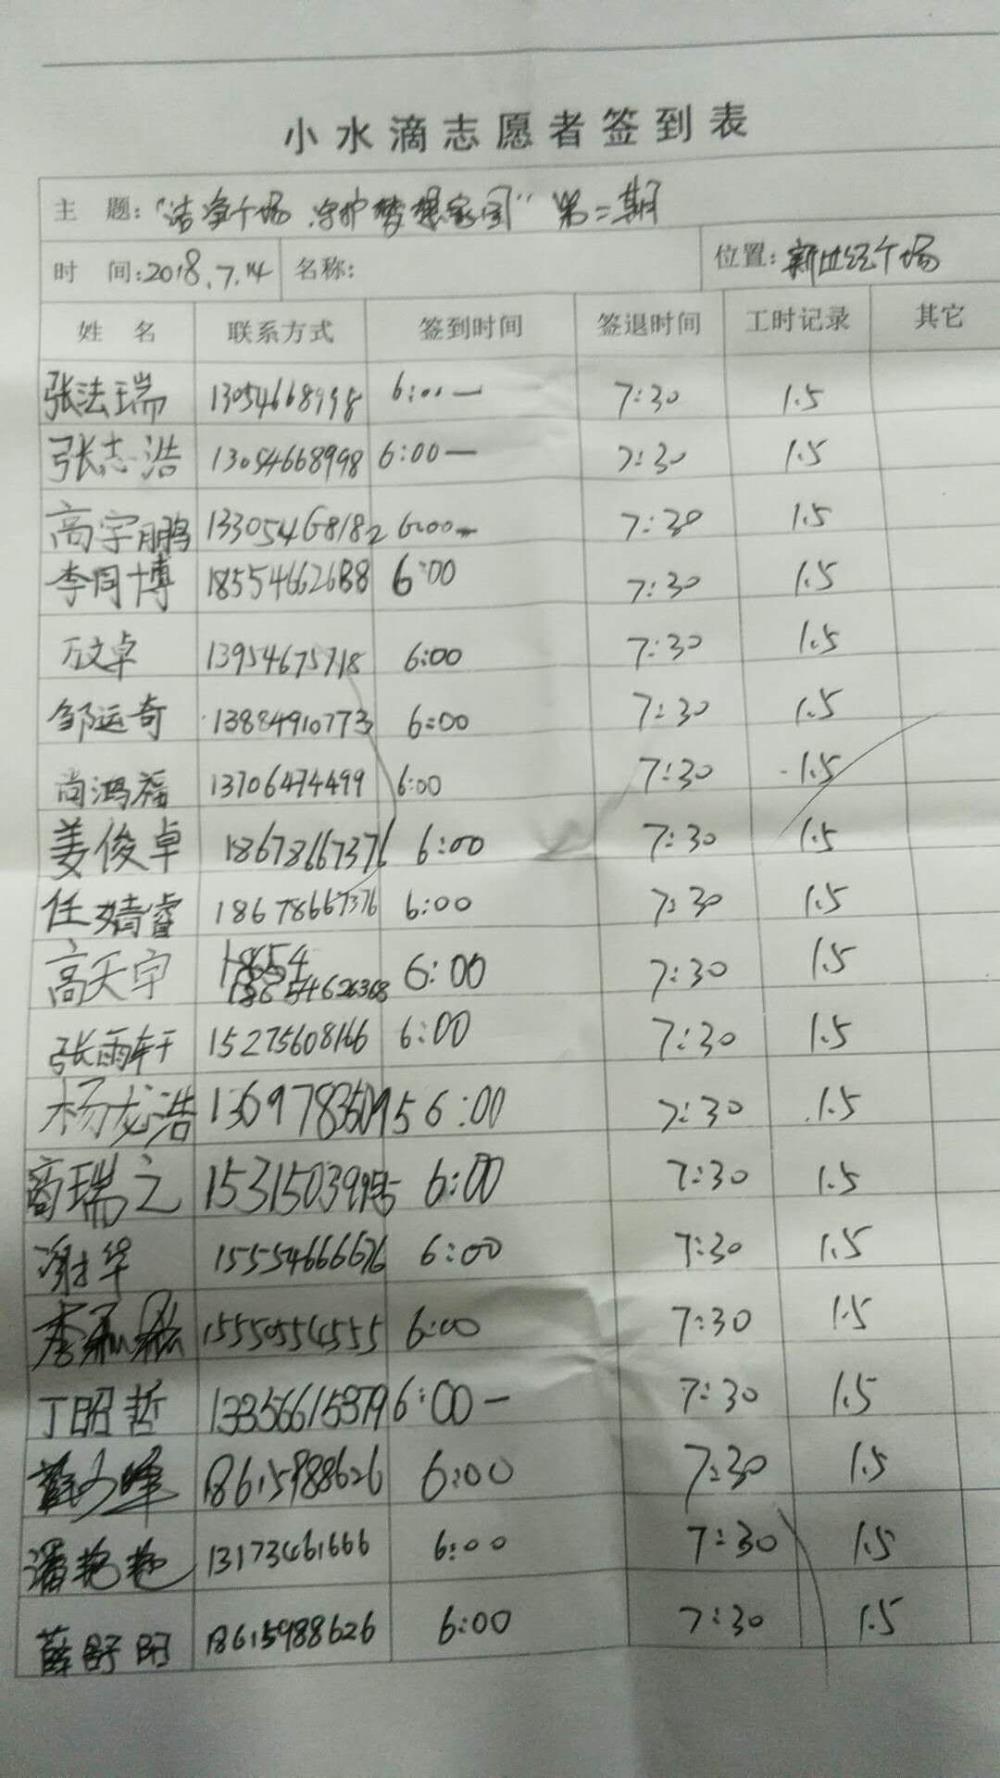 小水滴志愿者签到表
主 题:“洁净广场 守护梦想家园” 第二期
时 间:2018.7.14 名称: 位置:新世纪广场
姓 名 联系方式 签到时间 签退时间 工时记录 其它
张法瑞 13054668998 6:00— 7:30 1.5
张志浩 13054668998 6:00— 7:30 1.5
高宇鹏 13305468182 6:00- 7:30 1.5
李同博 18554662688 6:00 7:30 1.5
万文卓 13954675718 6:00 7:30 1.5
邹运奇 13884910773 6:00 7:30 1.5
尚鸿福 13706474499 6:00 7:30 1.5
姜俊卓 18678667376 6:00 7:30 1.5
任婧睿 18678667376 6:00 7:30 1.5
高天宇 18654626368 6:00 7:30 1.5
张雨轩 15275608166 6:00 7:30 1.5
杨龙浩 13697835095 6:00 7:30 1.5
商瑞之 6:00 7:30 1.5
谢华 15554666676 6:00 7:30 1.5
15550554555 6:00 7:30 1.5
丁昭哲 13356615379 6:00- 7:30 1.5
18615988626 6:00 7:30 1.5
潘艳艳 13173461666 6:00 7:30 1.5
薛舒阳 18615988626 6:00 7:30 1.5